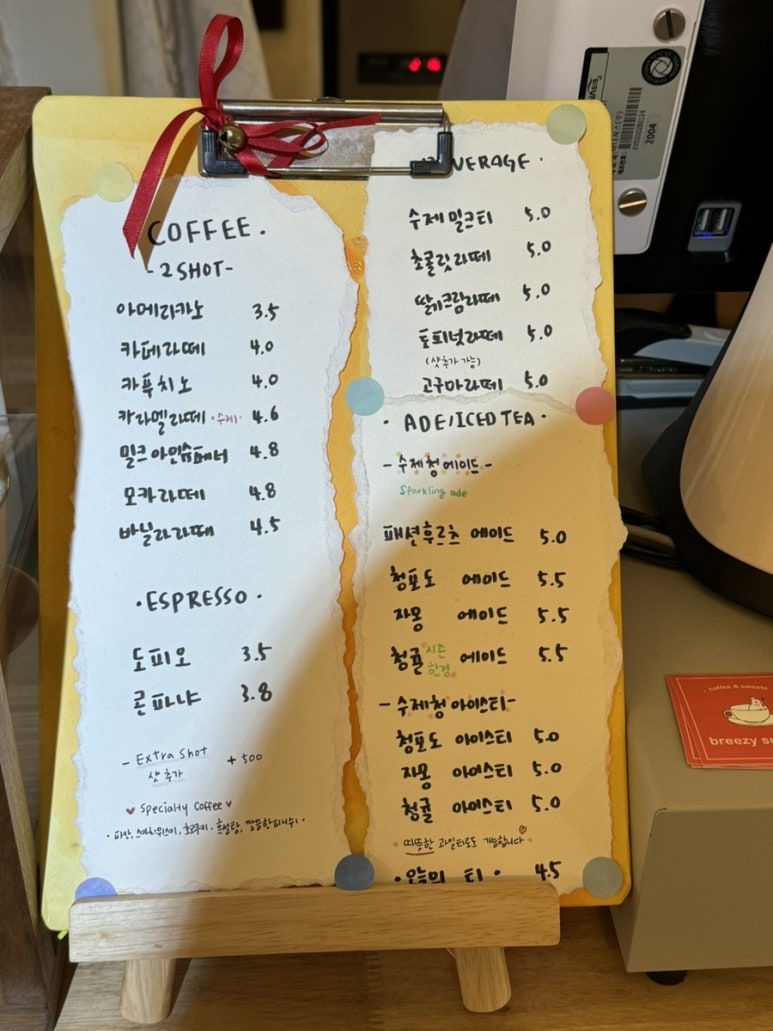 COFFEE.
-2SHOT-
아메리카노 3.5
카페라떼 4.0
카푸치노 4.0
카라멜라떼 •수제• 4.6
밀크아인슈페너 4.8
모카라떼 4.8
바닐라라떼 4.5
·ESPRESSO·
도피오 3.5
콘파냐 3.8
- Extra Shot +500
샷추가
Specialty Coffee
VERAGE ·
수제밀크티 5.0
초콜릿라떼 5.0
딸기크림라떼 5.0
토피넛라떼 5.0
(샷추가 가능)
고구마라떼 5.0
· ADE/ICED TEA ·
- 수제청에이드 -
Sparkling ade
패션후르츠 에이드 5.0
청포도 에이드 5.5
자몽 에이드 5.5
청귤 시즌한정 에이드 5.5
- 수제청아이스티-
청포도 아이스티 5.0
자몽 아이스티 5.0
청귤 아이스티 5.0
따뜻한 과일티로도 가능합니다
· 오늘의 티 · 4.5
2004
coffee & sweets
breezy